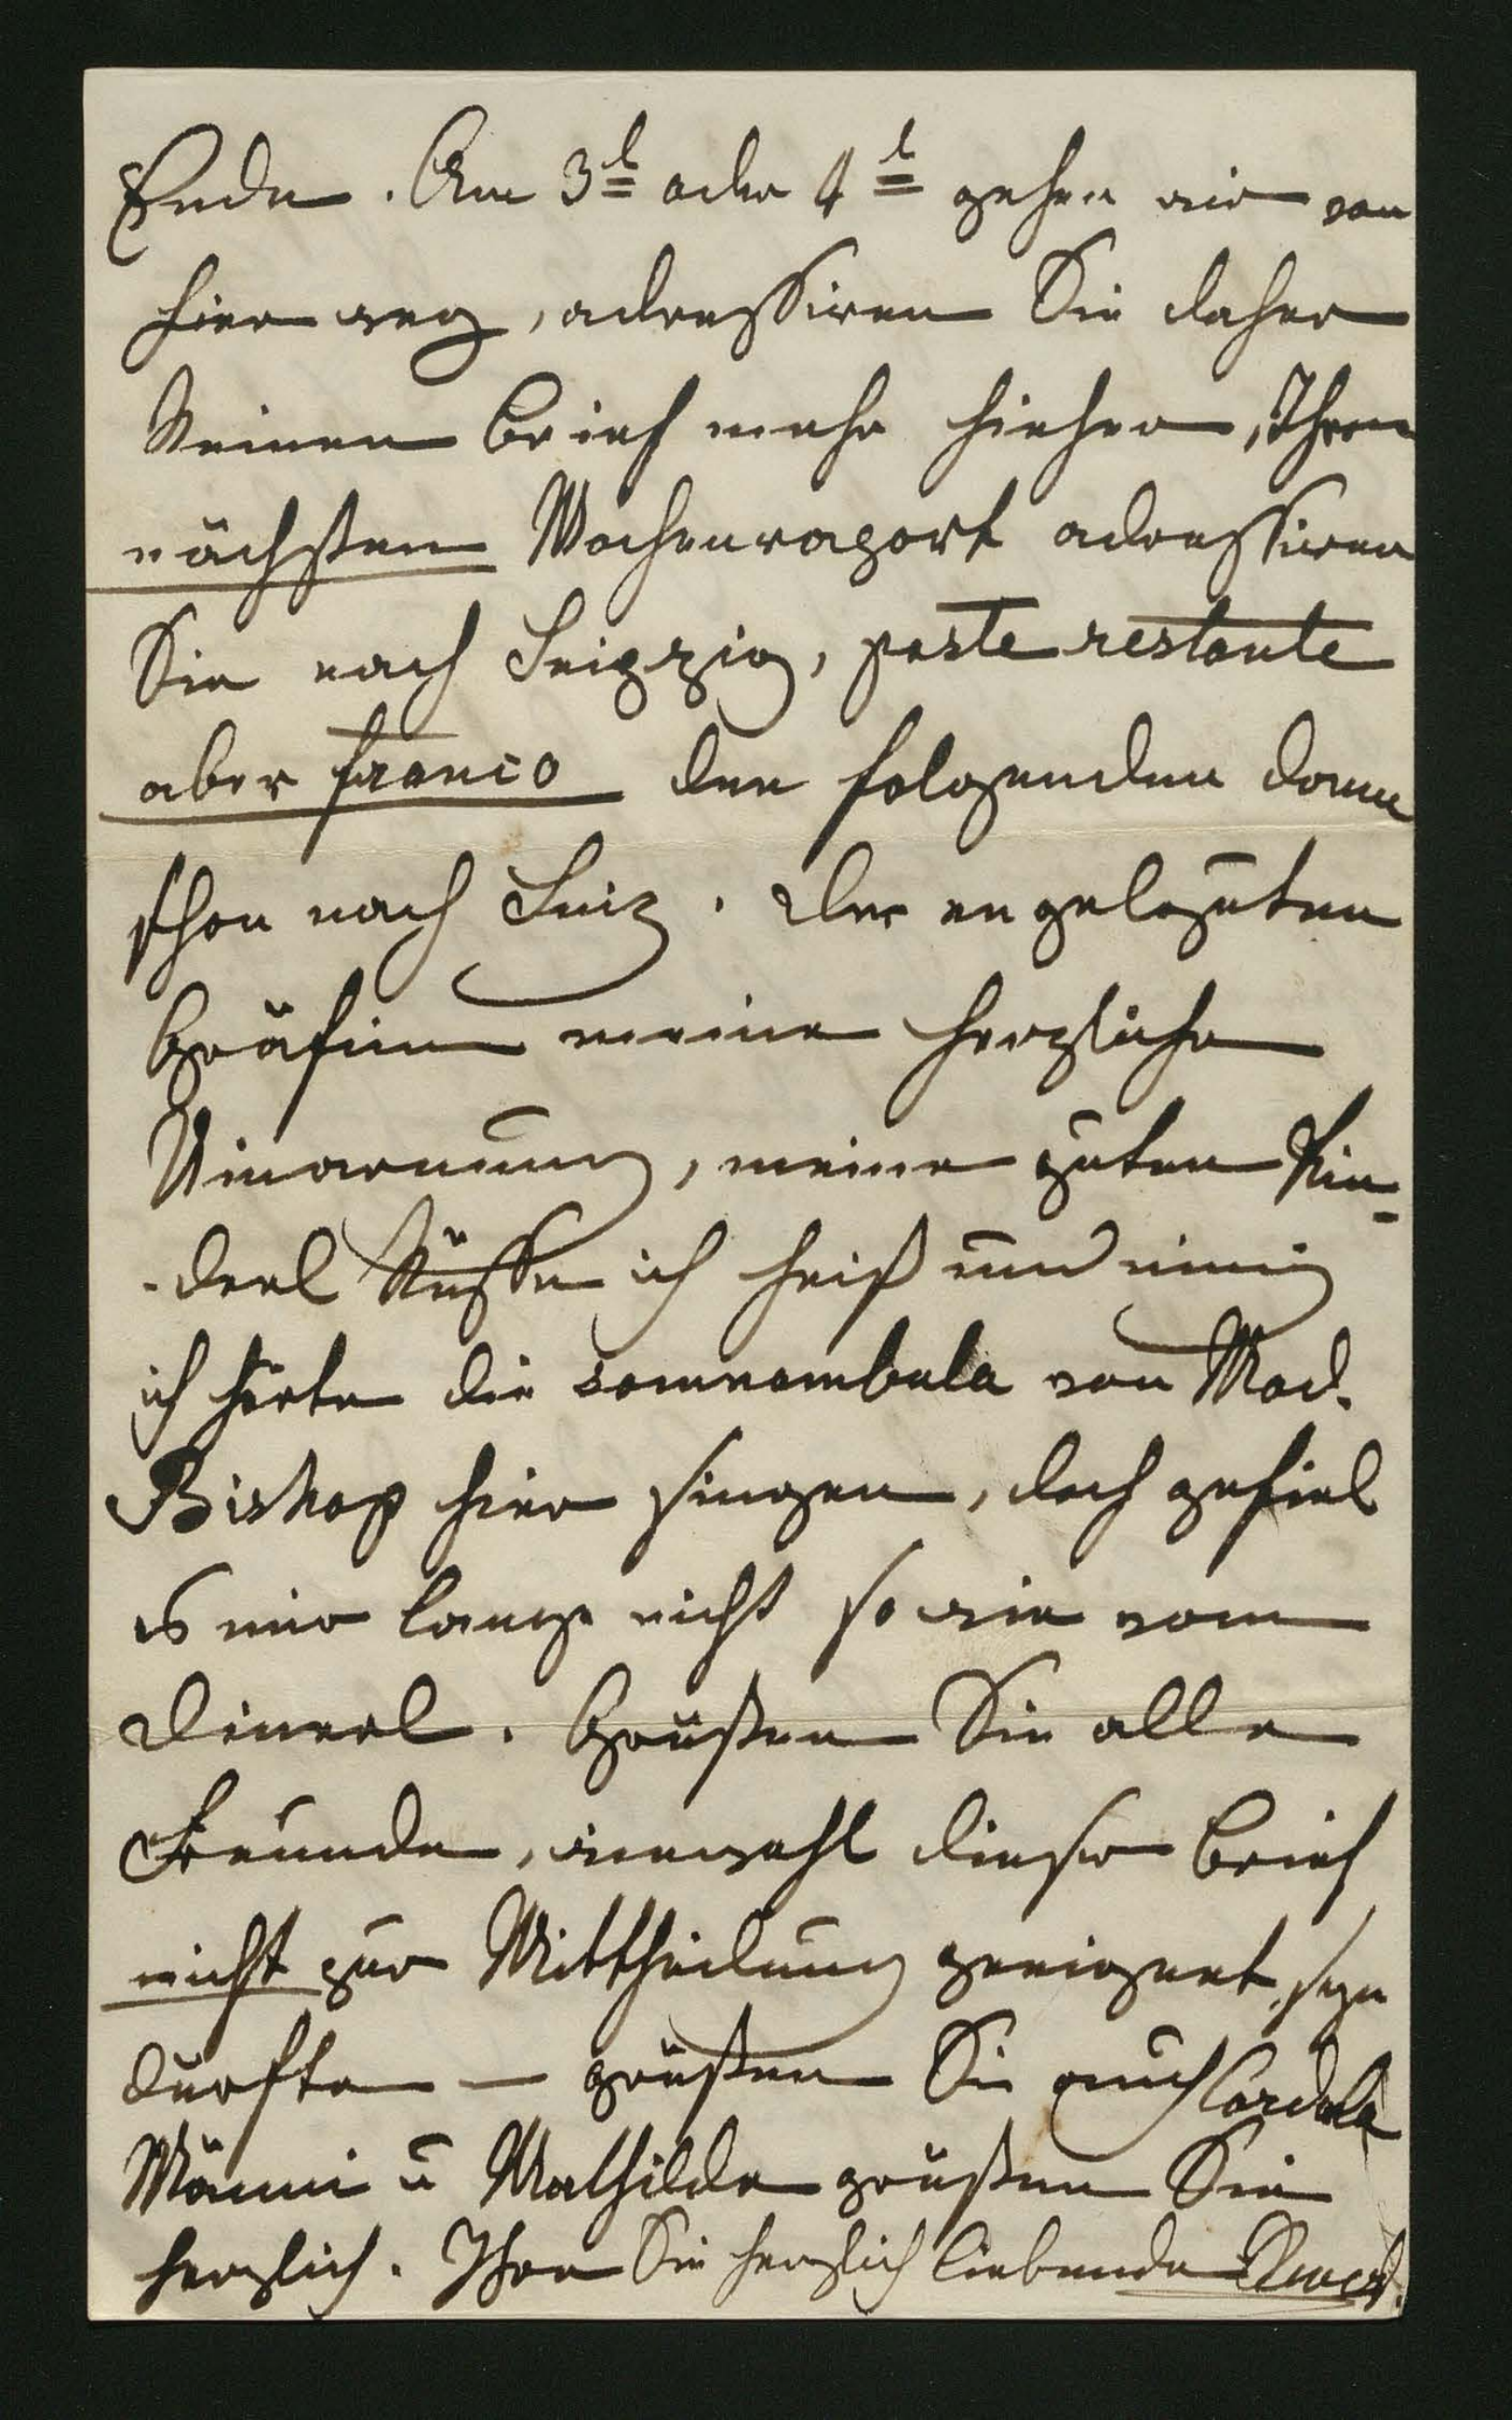 Ende. Am 3t oder 4t gehen wir von
hier weg, adressiren Sie daher
keinen Brief mehr hieher, Ihren
nächsten Wochenraport adressiren
Sie nach Leipzig, poste restante
aber franco den folgenden dann
schon nach Linz. Der engelguten
Gräfinn meine herzliche
Umarmung, meine guten Kin-
-derl küsse ich heiß und innig
ich hörte die somnambula von Mad.
Bishop hier singen, doch gefiel
es mir lange nicht so wie vom
Dinerl. Grüßen Sie alle
Freunde, wiewohl dieser Brief
nicht zur Mittheilung geeignet seyn
dürfte — grüßen Sie auch Cordula
Männi u Mathilde grüßen Sie
herzlich. Ihre Sie herzlich liebende